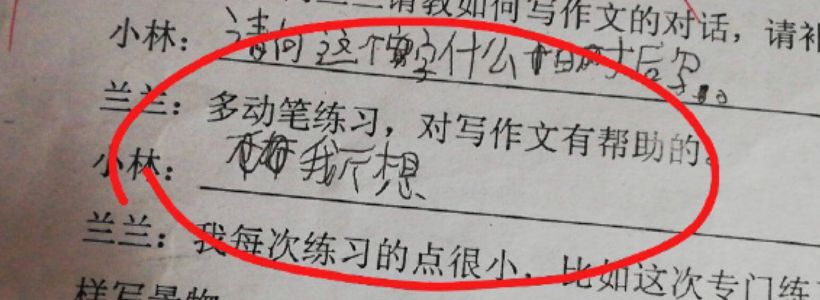 兰请教如何写作文的对话，请补
小林：请问这个字什么时后写。
兰兰：多动笔练习，对写作文有帮助的。
小林：我不想
兰兰：我每次练习的点很小，比如这次专门练
样写景物